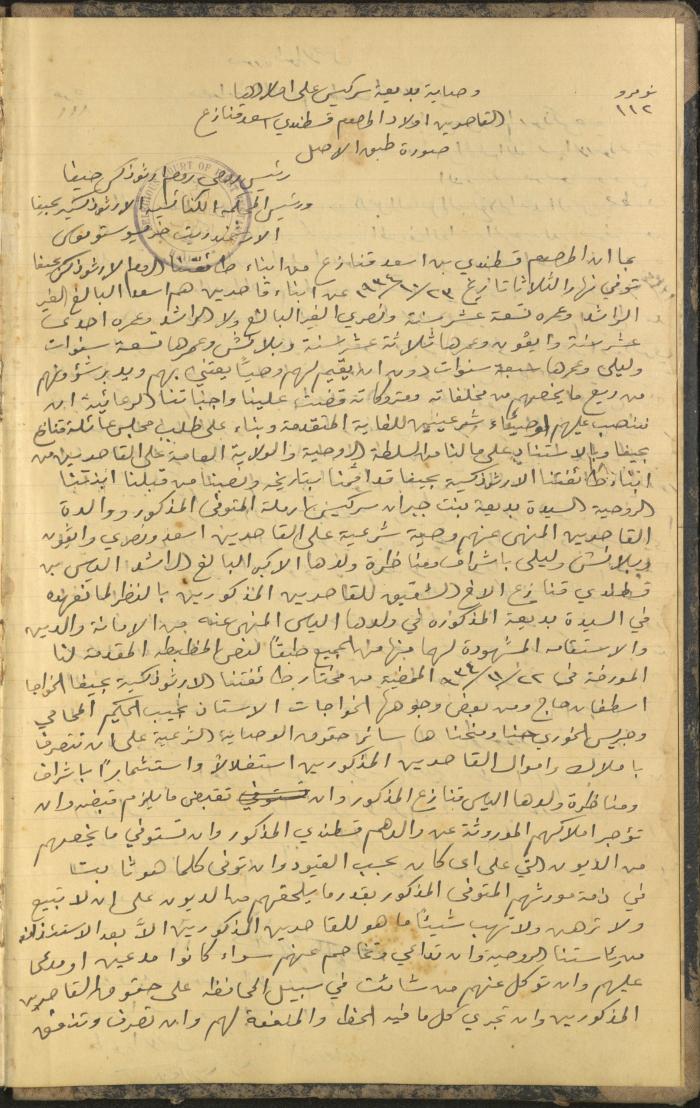 نومرو
١١٢
وصاية بديعة سركيس على اولادها
القاصرين اولاد المرحوم قسطندي اسعد قنازع
صورة طبق الاصل
رئيس روحي روم ارثوذكس حيفا
ورئيس المحكمة الكنائسية الارثوذكسية بحيفا
الارشمندريت
بما ان المرحوم قسطندي بن اسعد قنازع من ابناء طائفتنا الروم الارثوذكس بحيفا
توفي نهار الثلاثا تاريخ ٢٣/١٠/٩٣٤ عن ابناء قاصرين هم اسعد البالغ الغير
الراشد وعمره تسعة عشر سنة ونصري الغير البالغ ولا الراشد وعمره احدى
عشر سنة وايفون وعمرها ثلاثة عشر سنة وبلانش وعمرها تسعة سنوات
وليلى وعمرها سبعة سنوات دون ان يقيم لهم وصياً يعتني بهم ويدير شؤونهم
من ريع ما يخصهم من مخلفاته ومتروكاته قضت علينا واجباتنا الرعائية ان
ننصب عليهم اوصياء شرعيين للغاية المتقدمة وبناء على طلب مجلس عائلة قنازع
بحيفا وبالاستناد على ما لنا من السلطة الروحية والولاية العامة على القاصرين من
ابناء طائفتنا الارثوذكسية بحيفا قد اقمنا بتاريخه ونصبنا من قبلنا ابنتنا
الروحية السيدة بديعة بنت جبران سركيس ارملة المتوفى المذكور ووالدة
القاصرين المنهى عنهم وصية شرعية على القاصرين اسعد ونصري وايفون
وبلانش وليلى باشراف ومناظرة ولدها الاكبر البالغ الراشد الياس بن
قسطندي قنازع الاخ الشقيق للقاصرين المذكورين بالنظر لما نعهده
في السيدة بديعة المذكوره في ولدها الياس المنهى عنه من الامانة والدين
والاستقامه المشهودة لهما منها من الجميع طبقاً لنص المظبطه المقدمة لنا
المورخة في ٢٢/١١/٩٣٤ الممضية من مختار طائفتنا الارثوذكسية بحيفا الخواجا
اسطفان حاج ومن بعض وجوهها الخواجات الاستاذ نجيب الحكيم المحامي
وجريس الخوري حنا ومنحناها سائر حقوق الوصاية الشرعية على ان تتصرف
باملاك واموال القاصرين المذكورين استغلالاً واستثماراً باشراف
ومناظرة ولدها الياس قنازع المذكور وان تقبض ما يلزم قبضه وان
تؤجر املاكهم الموروثة عن والدهم قسطندي المذكور وان تستوفي ما يخصهم
من الديون التي على اى كان بحسب القيود وان توفى كلما هو ثابت
في ذمة مورثهم المتوفى المذكور بقدر ما يلحقهم من الديون على ان لا تبيع
ولا ترهن ولا تهب شيئاً ما هو للقاصرين المذكورين الاّ بعد الاستئذان
من رئاستنا الروحية وان تداعي وتخاصم عنهم سواء كانوا مدعين او مدعى
عليهم وان توكل عنهم من شائت في سبيل المحافظه على حقوق القاصرين
المذكورين وان تجري كل ما فيه الحظ والمنفعة لهم وان تصرف وتنفق